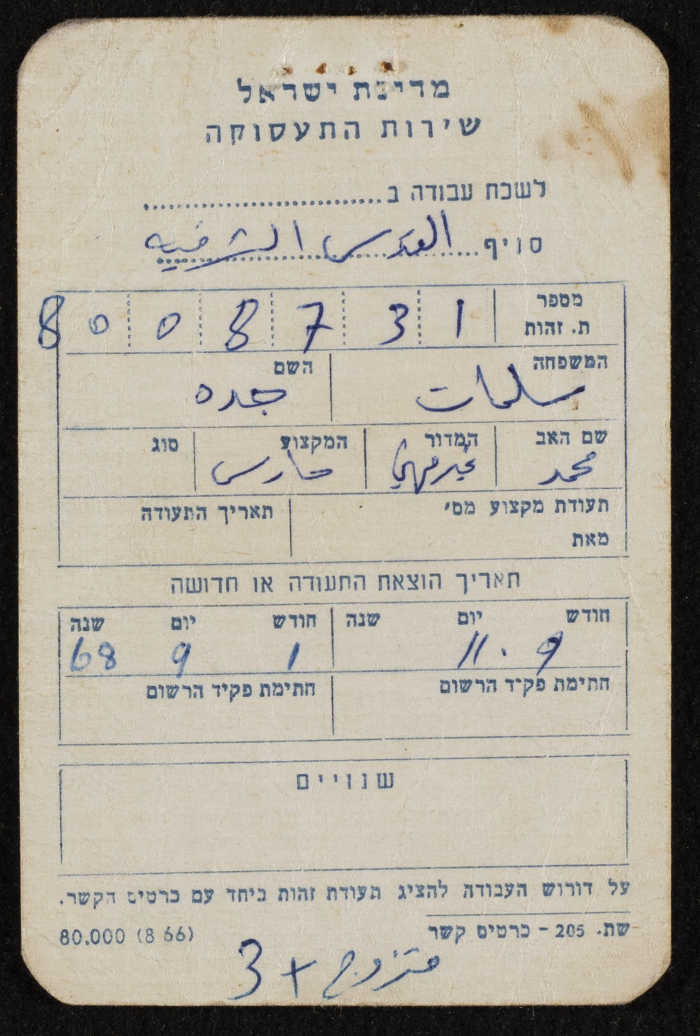 מדינת ישראל
שירות התעסוקה
לשכת עבודה ב
סניף القدس الشرقيه
מספר ת. זהות 8 0 0 8 7 3 1
המשפחה سلمات השם جده
שם האב محمد המדור غير مهني המקצוע حارس סוג
תעודת מקצוע מס' תאריך התעודה
מאת
תאריך הוצאת התעודה או חדושה
חודש יום שנה חודש יום שנה
9 11. 1 9 68
חתימת פקיד הרשום חתימת פקיד הרשום
שנויים
על דורש העבודה להציג תעודת זהות ביחד עם כרטיס הקשר.
שת. 205 - כרטיס קשר 80.000 (8 66)
متزوج + 3